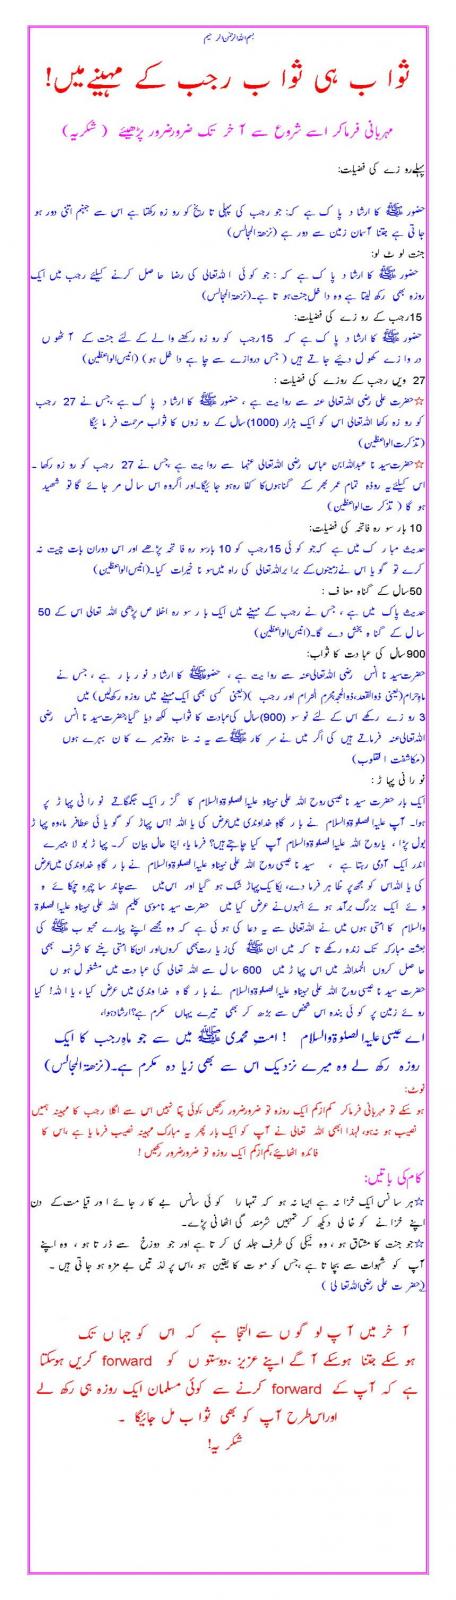 بسم اللہ الرحمن الرحیم
ثواب ہی ثواب رجب کے مہینے میں!
مہربانی فرماکر اسے شروع سے آخر تک ضرور ضرور پڑھیئے (شکریہ)
پہلے روزے کی فضیلت:
حضور ﷺ کا ارشاد پاک ہے کہ: جو رجب کی پہلی تاریخ کو روزہ رکھتا ہے اس سے جہنم اتنی دور ہو
جاتی ہے جتنا آسمان زمین سے دور ہے (نزھۃ المجالس)
جنت لوٹ لو:
حضور ﷺ کا ارشاد پاک ہے کہ : جو کوئی اللہ تعالی کی رضا حاصل کرنے کیلئے رجب میں ایک
روزہ بھی رکھ لیتا ہے وہ داخل جنت ہوتا ہے۔(نزھۃ المجالس)
15رجب کے روزے کی فضیلت:
حضور ﷺ کا ارشاد پاک ہے کہ 15رجب کو روزہ رکھنے والے کے لئے جنت کے آٹھوں
دروازے کھول دیئے جاتے ہیں (جس دروازے سے چاہے داخل ہو) (انیس الواعظین)
27 ویں رجب کے روزے کی فضیلت :
☆حضرت علی رضی اللہ تعالی عنہ سے روایت ہے ، حضور ﷺ کا ارشاد پاک ہے ،جس نے 27 رجب
کو روزہ رکھا اللہ تعالی اس کو ایک ہزار (1000)سال کے روزوں کا ثواب مرحمت فرمائیگا
(تذکرت الواعظین)
☆حضرت سیدنا عبداللہ ابن عباس رضی اللہ تعالی عنہما سے روایت ہے ،جس نے 27 رجب کو روزہ رکھا ۔
اس کیلئے یہ روذہ تمام عمر بھر کے گناہوں کا کفارہ ہو جائیگا۔اور اگر وہ اس سال مر جائے گا تو شھید
ہو گا (تذکرت الواعظین)
10 بار سورہ فاتحہ کی فضیلت:
حدیث مبارک میں ہے کہ جو کوئی 15رجب کو 10 بار سورہ فاتحہ پڑھے اور اس دوران بات چیت نہ
کرے تو گویا اس نے زمینوں کے برابر اللہ تعالی کی راہ میں سونا خیرات کیا۔(انیس الواعظین)
50سال کے گناہ معاف :
حدیث پاک میں ہے ، جس نے رجب کے مہینے میں ایک بار سورہ اخلاص پڑھی اللہ تعالی اس کے 50
سال کے گناہ بخش دے گا۔(انیس الواعظین)
900سال کی عبادت کا ثواب:
حضرت سیدنا انس رضی اللہ تعالی عنہ سے روایت ہے ، حضور ﷺ کا ارشاد نور بار ہے ، جس نے
ماہ حرام(یعنی ذوالقعد،ذوالحج،محرم الحرام اور رجب )(یعنی کسی بھی ایک مہینے میں روزہ رکھ لیں) میں
3 روزے رکھے اس کے لئے نو سو (900)سال کی عبادت کا ثواب لکھ دیا گیا،حضرت سیدنا انس رضی
اللہ تعالی عنہ فرماتے ہیں کی اگر میں نے سرکار ﷺ سے یہ نہ سنا ہو تو میرے کان بہرے ہوں
(مکاشفت القلوب)
نورانی پہاڑ :
ایک بار حضرت سیدنا عیسی روح اللہ علی نبیناو علیہ الصلوۃ والسلام کا گزر ایک جگمگاتے نورانی پہاڑ پر
ہوا۔ آپ علیہ الصلوۃ والسلام نے بارگاہ خداوندی میں عرض کی یا اللہ !اس پہاڑ کو گویائی عطافر ما،وہ پہاڑ
بول پڑا، یا روح اللہ علیہ الصلوۃ والسلام آپ کیا چاہتے ہیں؟ فرمایا، اپنا حال بیان کر۔ پہاڑ بولا میرے
اندر ایک آدی رہتا ہے ، سیدنا عیسی روح اللہ علی نبیناو علیہ الصلوۃ والسلام نے بارگاہ خداوندی میں عرض
کی یا اللہ اس کو مجھ پر ظاہر فرما دے، یکایک پہاڑ شک ہو گیا اور اس میں سے چاند سا چہرہ چمکائے ہو
وئے ایک بزرگ برآمد ہوئے انہوں نے عرض کیا میں حضرت سیدنا موسی کلیم اللہ علی نبیناو علیہ الصلوۃ
والسلام کا امتی ہوں میں نے اللہ تعالی سے یہ دعا کی ہوئی ہے کہ وہ مجھے اپنے پیارے محبوب ﷺ کی
بعثت مبارکہ تک زندہ رکھے تا کہ میں ان ﷺ کی زیارت بھی کروں اور ان کا امتی بننے کا شرف بھی
حاصل کروں الحمد اللہ میں اس پہاڑ میں 600 سال سے اللہ تعالی کی عبادت میں مشغول ہوں
حضرت سیدنا عیسی روح اللہ علی نبیناو علیہ الصلوۃ والسلام نے بارگاہ خداوندی میں عرض کیا ، یا اللہ! کیا
روئے زمین پر کوئی بندہ اس شخص سے بڑھ کر بھی تیرے یہاں مکرم ہے؟ارشاد ہوا،
اے عیسی علیہ الصلوۃ والسلام ! امت محمدی ﷺ میں سے جو ماہ رجب کا ایک
روزہ رکھ لے وہ میرے نزدیک اس سے بھی زیادہ مکرم ہے۔(نزھۃ المجالس)
نوٹ:
ہو سکے تو مہربانی فرماکر کم از کم ایک روزہ تو ضرور ضرور رکھیں ،کوئی پتا نہیں اس سے اگلا رجب کا مہینہ ہمیں
نصیب ہو نہ ہو، لہذا ابھی اللہ تعالی نے آپ کو ایک بار پھر یہ مبارک مہینہ نصیب فرمایا ہے ،اس کا
فائدہ اٹھایئے،کم از کم ایک روزہ تو ضرور ضرور رکھیں !
کام کی باتیں:
☆ہر سانس ایک خزانہ ہے ایسا نہ ہو کہ تمہارا کوئی سانس بے کار جائے اور قیامت کے دن
اپنے خزانے کو خالی دیکھ کر تمہیں شرمندگی اٹھانی پڑے۔
☆جو جنت کا مشتاق ہو ، وہ نیکی کی طرف جلدی کرتا ہے اور جو دوزخ سے ڈرتا ہو ، وہ اپنے
آپ کو شہوات سے بچاتا ہے ،جس کو موت کا یقین ہو ،اس پر لذتیں بے مزہ ہو جاتی ہیں ۔
(حضرت علی رضی اللہ تعالیٰ)
آخر میں آپ لوگوں سے التجا ہے کہ اس کو جہاں تک
ہو سکے جتنا ہوسکے آگے اپنے عزیز ،دوستوں کو forward کریں ہوسکتا
ہے کہ آپ کے forward کرنے سے کوئی مسلمان ایک روزہ ہی رکھ لے
اور اس طرح آپ کو بھی ثواب مل جائیگا ۔
شکریہ!